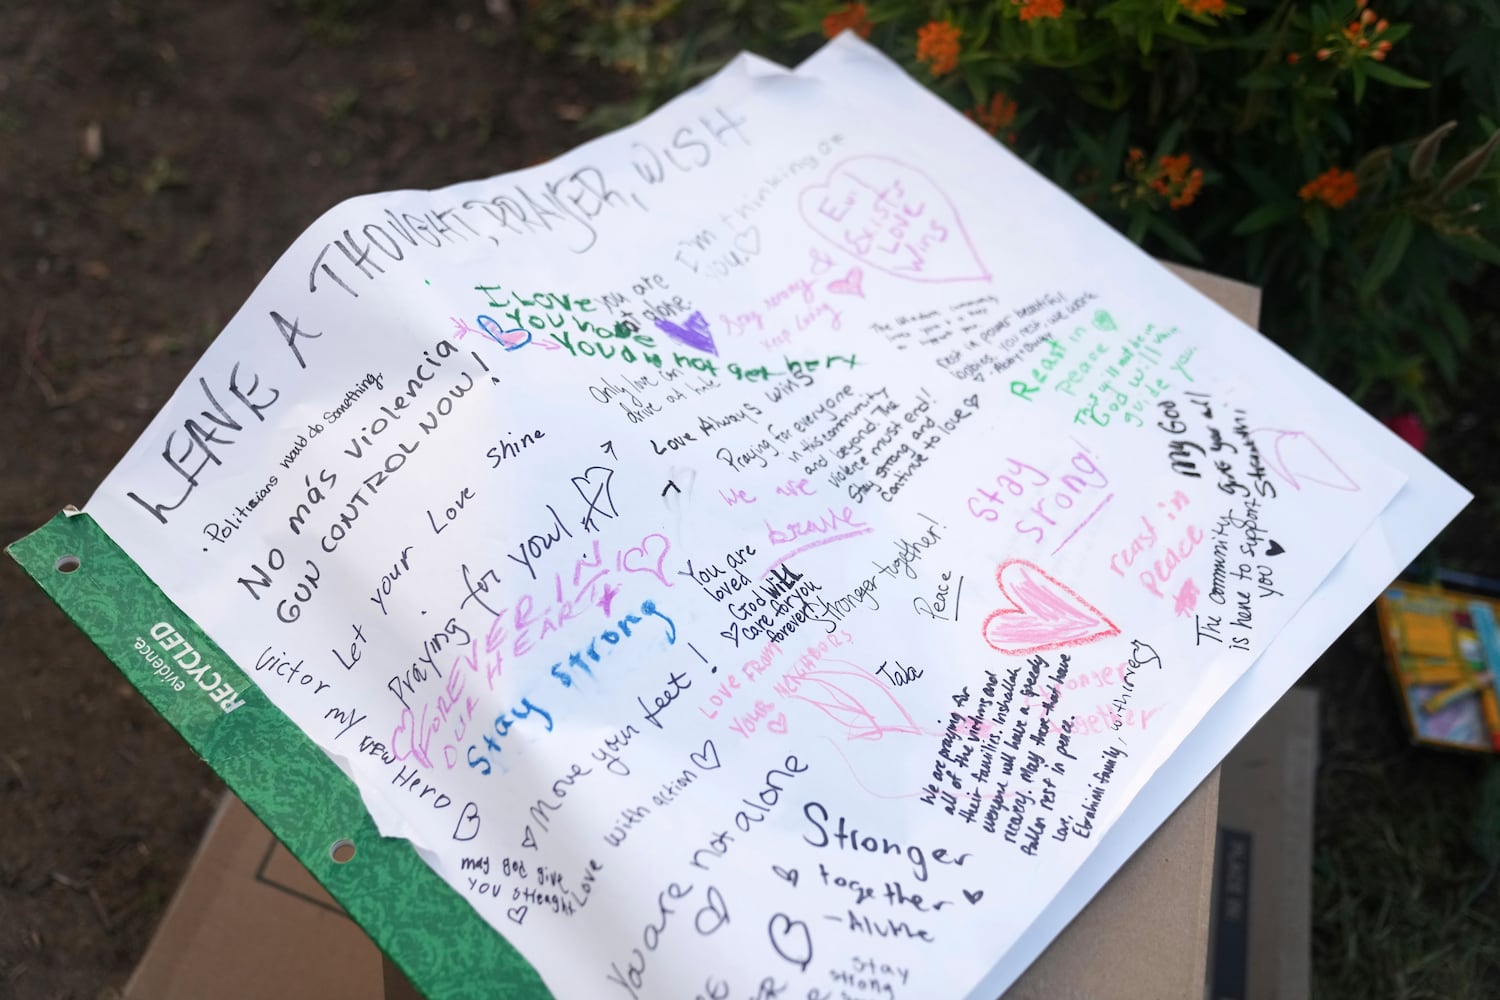 LEAVE A THOUGHT, PRAYER, WISH
I'm thinking of
you.
Evil
Exists
Love
Wins
Stay strong &
keep loving
I LOVE
You
You are
not alone.
You are not
Only love can
drive out hate
Love Always wins
• Politicians would do something.
NO más violencia
GUN CONTROL NOW!
Let your Love shine
Praying for you!
FOREVER IN
OUR HEARTS
Stay strong
Victor my
new
Hero
Praying for everyone
in this community
and beyond. The
violence must end!
Stay strong and
continue to love
rest in power beautiful
Reast in
peace
God will
guide you.
We are
brave
Stay
srong!
my God
give you all
Strenth!!
reast in
peace
The community
is here to support
you
You are
loved
God will
care for you
forever!
Stronger together!
Peace
LOVE FROM
YOUR NEIGHBORS
Tala
stronger
together
We are praying for
all of the victims and
their families. Inshallah
everyone will have a speedy
recovery. May those that have
fallen rest in peace.
Love,
Ebrahimi family
Move your feet!
Love with action
may god give
you strenght
You are not alone
Stronger
together
stay
strong
evidence.
RECYCLED